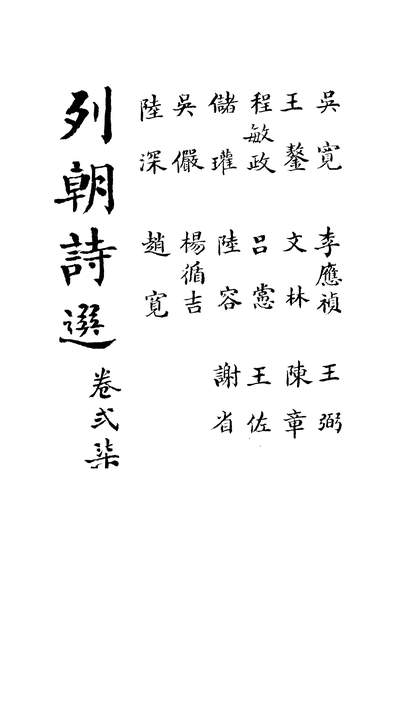 吳寬 李應禎 王弼
王鏊 文林 陳章
程敏政 呂㦂 王佐
儲瓘 陸容 謝省
吳儼 楊循吉
陸深 趙寬
列朝詩選 卷弍柒